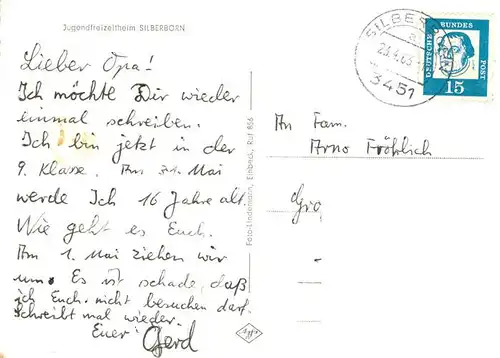 Jugendfreizeitheim SILBERBORN
Lieber Opa!
Ich möchte Dir wieder
einmal schreiben.
Ich bin jetzt in der
9. Klasse. Am 31. Mai
werde Ich 16 Jahre alt.
Wie geht es Euch.
Am 1. Mai ziehen wir
um. Es ist schade, daß
ich Euch nicht besuchen darf.
Schreibt mal wieder.
Euer Gerd
Foto-Lindemann, Einbeck, Ruf 856
SILBERBORN
a
3451
DEUTSCHE BUNDESPOST
15
An Fam.
Arno Fröhlich